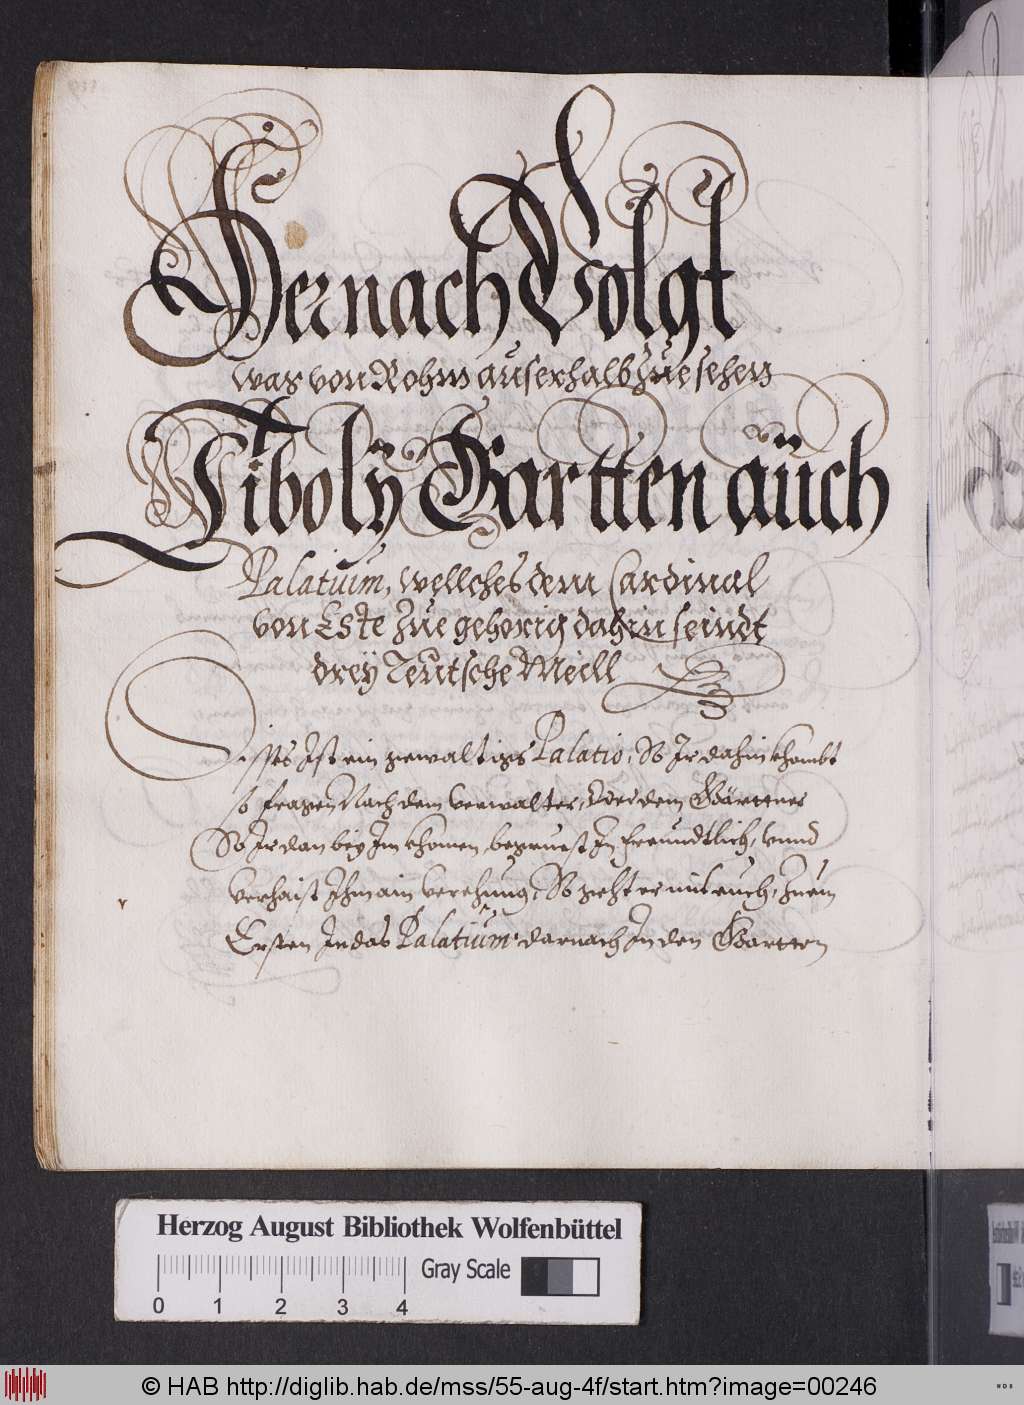 Hernach Volgt
was von Rohm auserhalb zue sehen
Tiboly Gartten aüch
Palatuim, wellches dem Cardinal
von Este zue gehorig dahin seindt
dreÿ Teutsche Meill
Disses Ist ein gewaltigs Palatio, So Ir dahin khombt
so fragen Nach dem verwalter, Oder dem Gärttner
So Ir dan beÿ Im khomen, begruest In freundtlich, vnnd
verhaist Ihm ain verehung, So geht er mit euch, Zuem
Ersten In das Palatium darnach In den Gartten
Herzog August Bibliothek Wolfenbüttel
Gray Scale
0 1 2 3 4
© HAB http://diglib.hab.de/mss/55-aug-4f/start.htm?image=00246